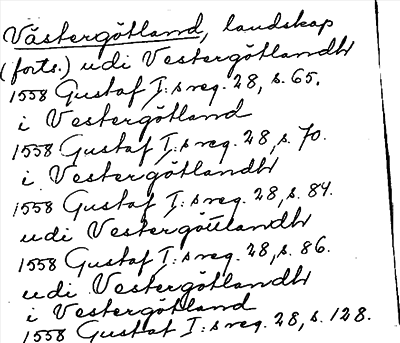 Västergötland, landskap
(forts.) udi Vestergötlandh
1558 Gustaf I:s reg. 28, s. 65.
i Vestergötland
1558 Gustaf I:s reg. 28, s. 70.
i Vestergötlandh
1558 Gustaf I:s reg. 28, s. 84.
udi Vestergöttlandh
1558 Gustaf I:s reg. 28, s. 86.
udi Vestergötlandh
i Vestergötland
1558 Gustaf I:s reg. 28, s. 128.